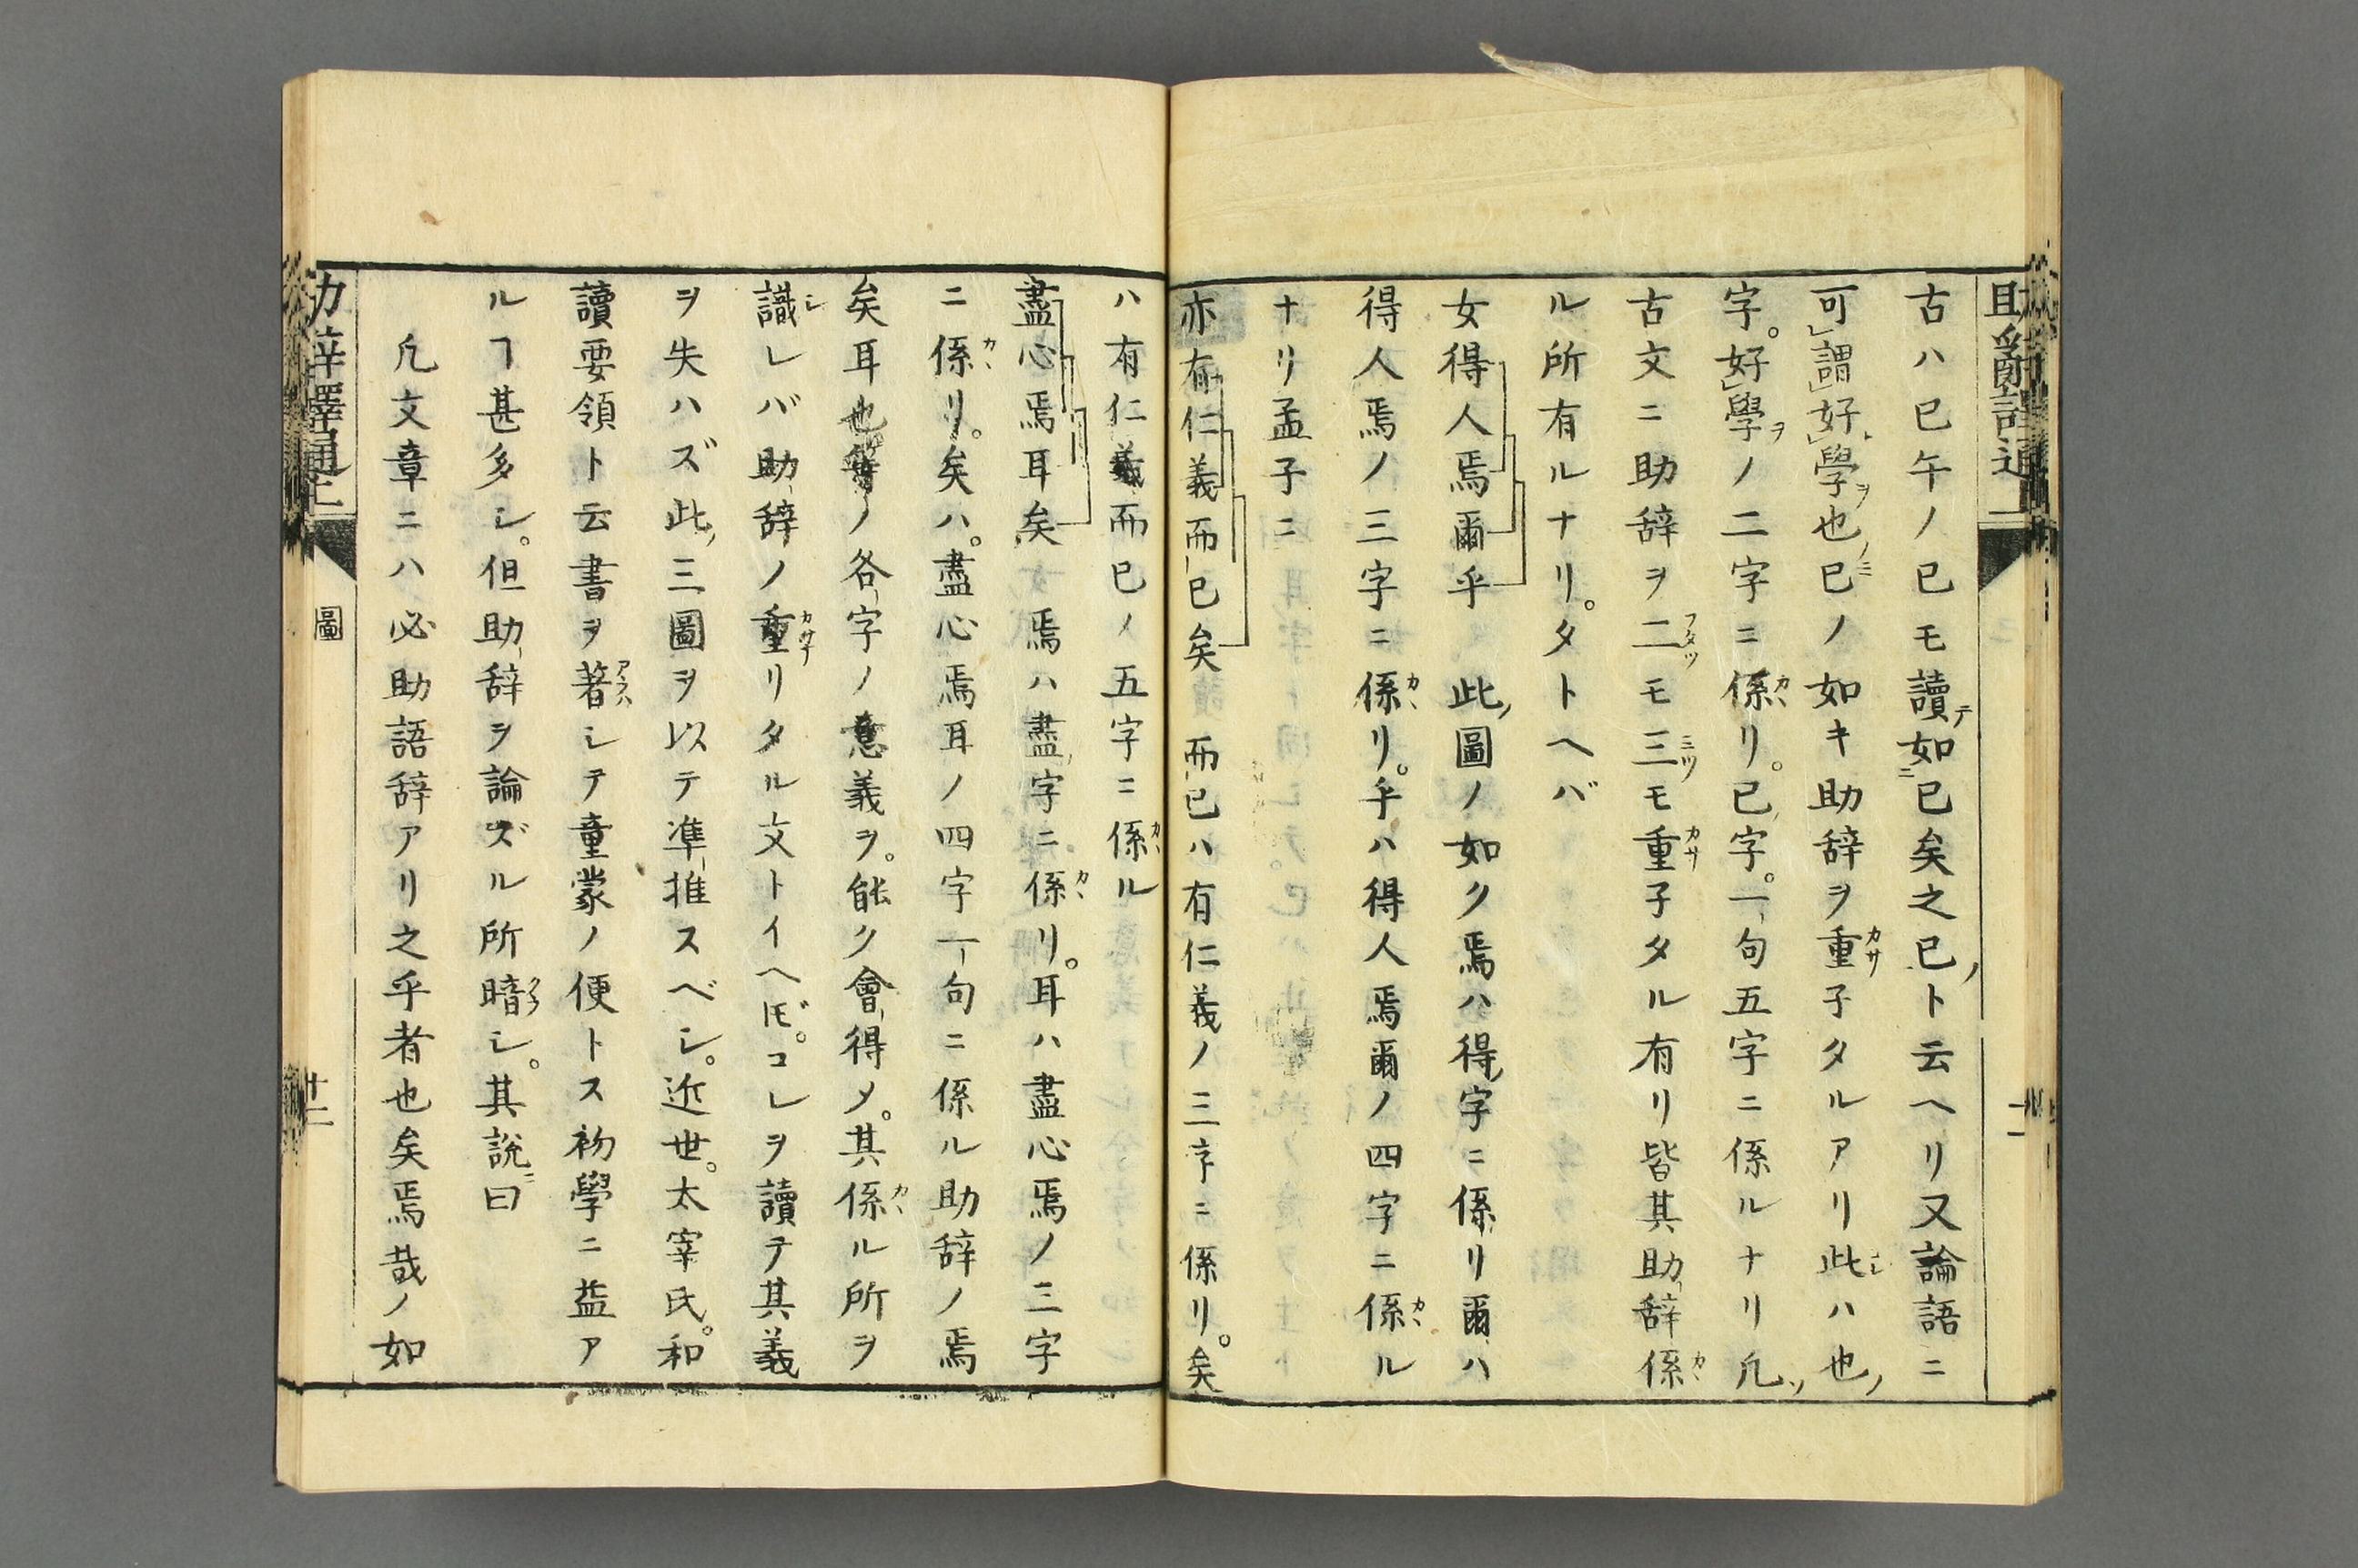 古ハ已午ノ已モ讀テ如已矣之已ト云ヘリ又論語ニ
可謂好學也已ノ如キ助辞ヲ重子タルアリ此ハ也ノ
字。好學ノ二字ニ係リ。已字。一句五字ニ係ルナリ凡ソ
古文ニ助辞ヲ二モ三モ重子タル有リ皆其助辞係
ル所有ルナリ。タトヘバ
女得人焉爾乎 此圖ノ如ク焉ハ得字ニ係リ爾ハ
得人焉ノ三字ニ係リ。乎ハ得人焉爾ノ四字ニ係ル
ナリ孟子ニ
亦有仁義而已矣 而已ハ有仁義ノ三字ニ係リ。矣
ハ有仁義而已ノ五字ニ係ル
盡心焉耳矣 焉ハ盡字ニ係リ。耳ハ盡心焉ノ三字
ニ係リ。矣ハ。盡心焉耳ノ四字一句ニ係ル助辞ノ焉
矣耳也等ノ各字ノ意義ヲ。能ク會得メ。其係ル所ヲ
識レバ助辞ノ重リタル文トイヘ𪜈。コレヲ讀テ其義
ヲ失ハズ此三圖ヲ以テ準推スベシ。近世。太宰氏。和
讀要領ト云書ヲ著シテ童蒙ノ便トス初學ニ益ア
ルヿ甚多シ。但助辞ヲ論ズル所暗シ。其説曰
凡文章ニハ必助語辞アリ之乎者也矣焉哉ノ如
圖